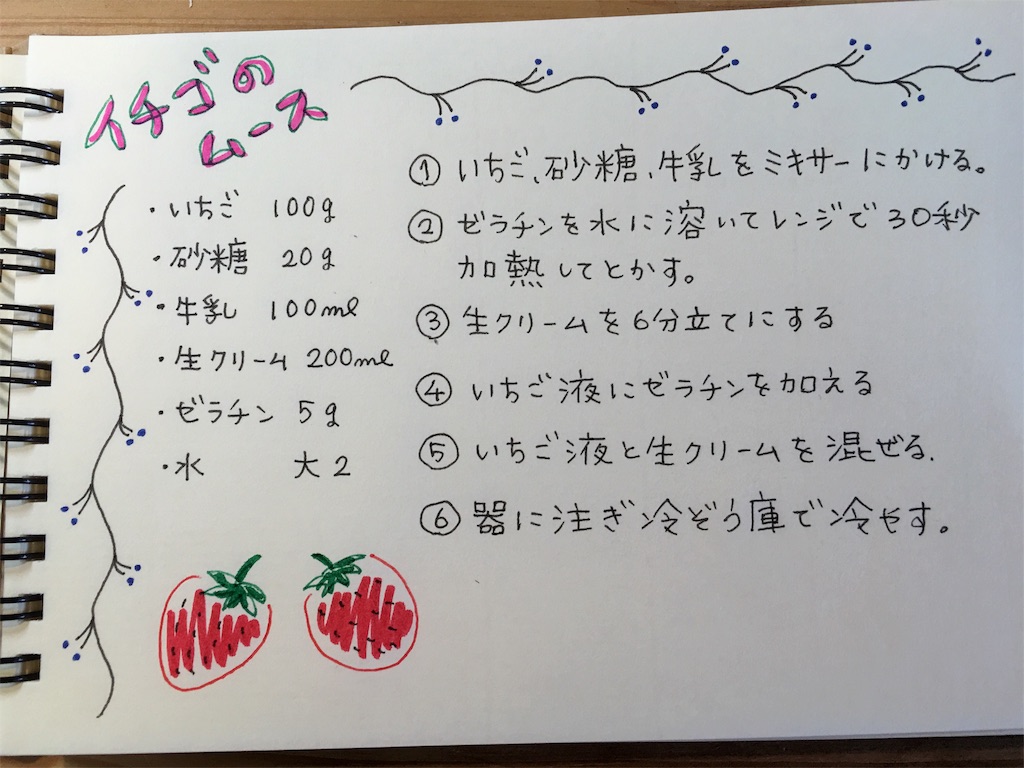 イチゴの
ムース
・いちご 100g
・砂糖 20g
・牛乳 100ml
・生クリーム 200ml
・ゼラチン 5g
・水 大2
① いちご、砂糖、牛乳をミキサーにかける。
② ゼラチンを水に溶いてレンジで30秒
加熱してとかす。
③ 生クリームを6分立てにする
④ いちご液にゼラチンを加える
⑤ いちご液と生クリームを混ぜる.
⑥ 器に注ぎ冷ぞう庫で冷やす。